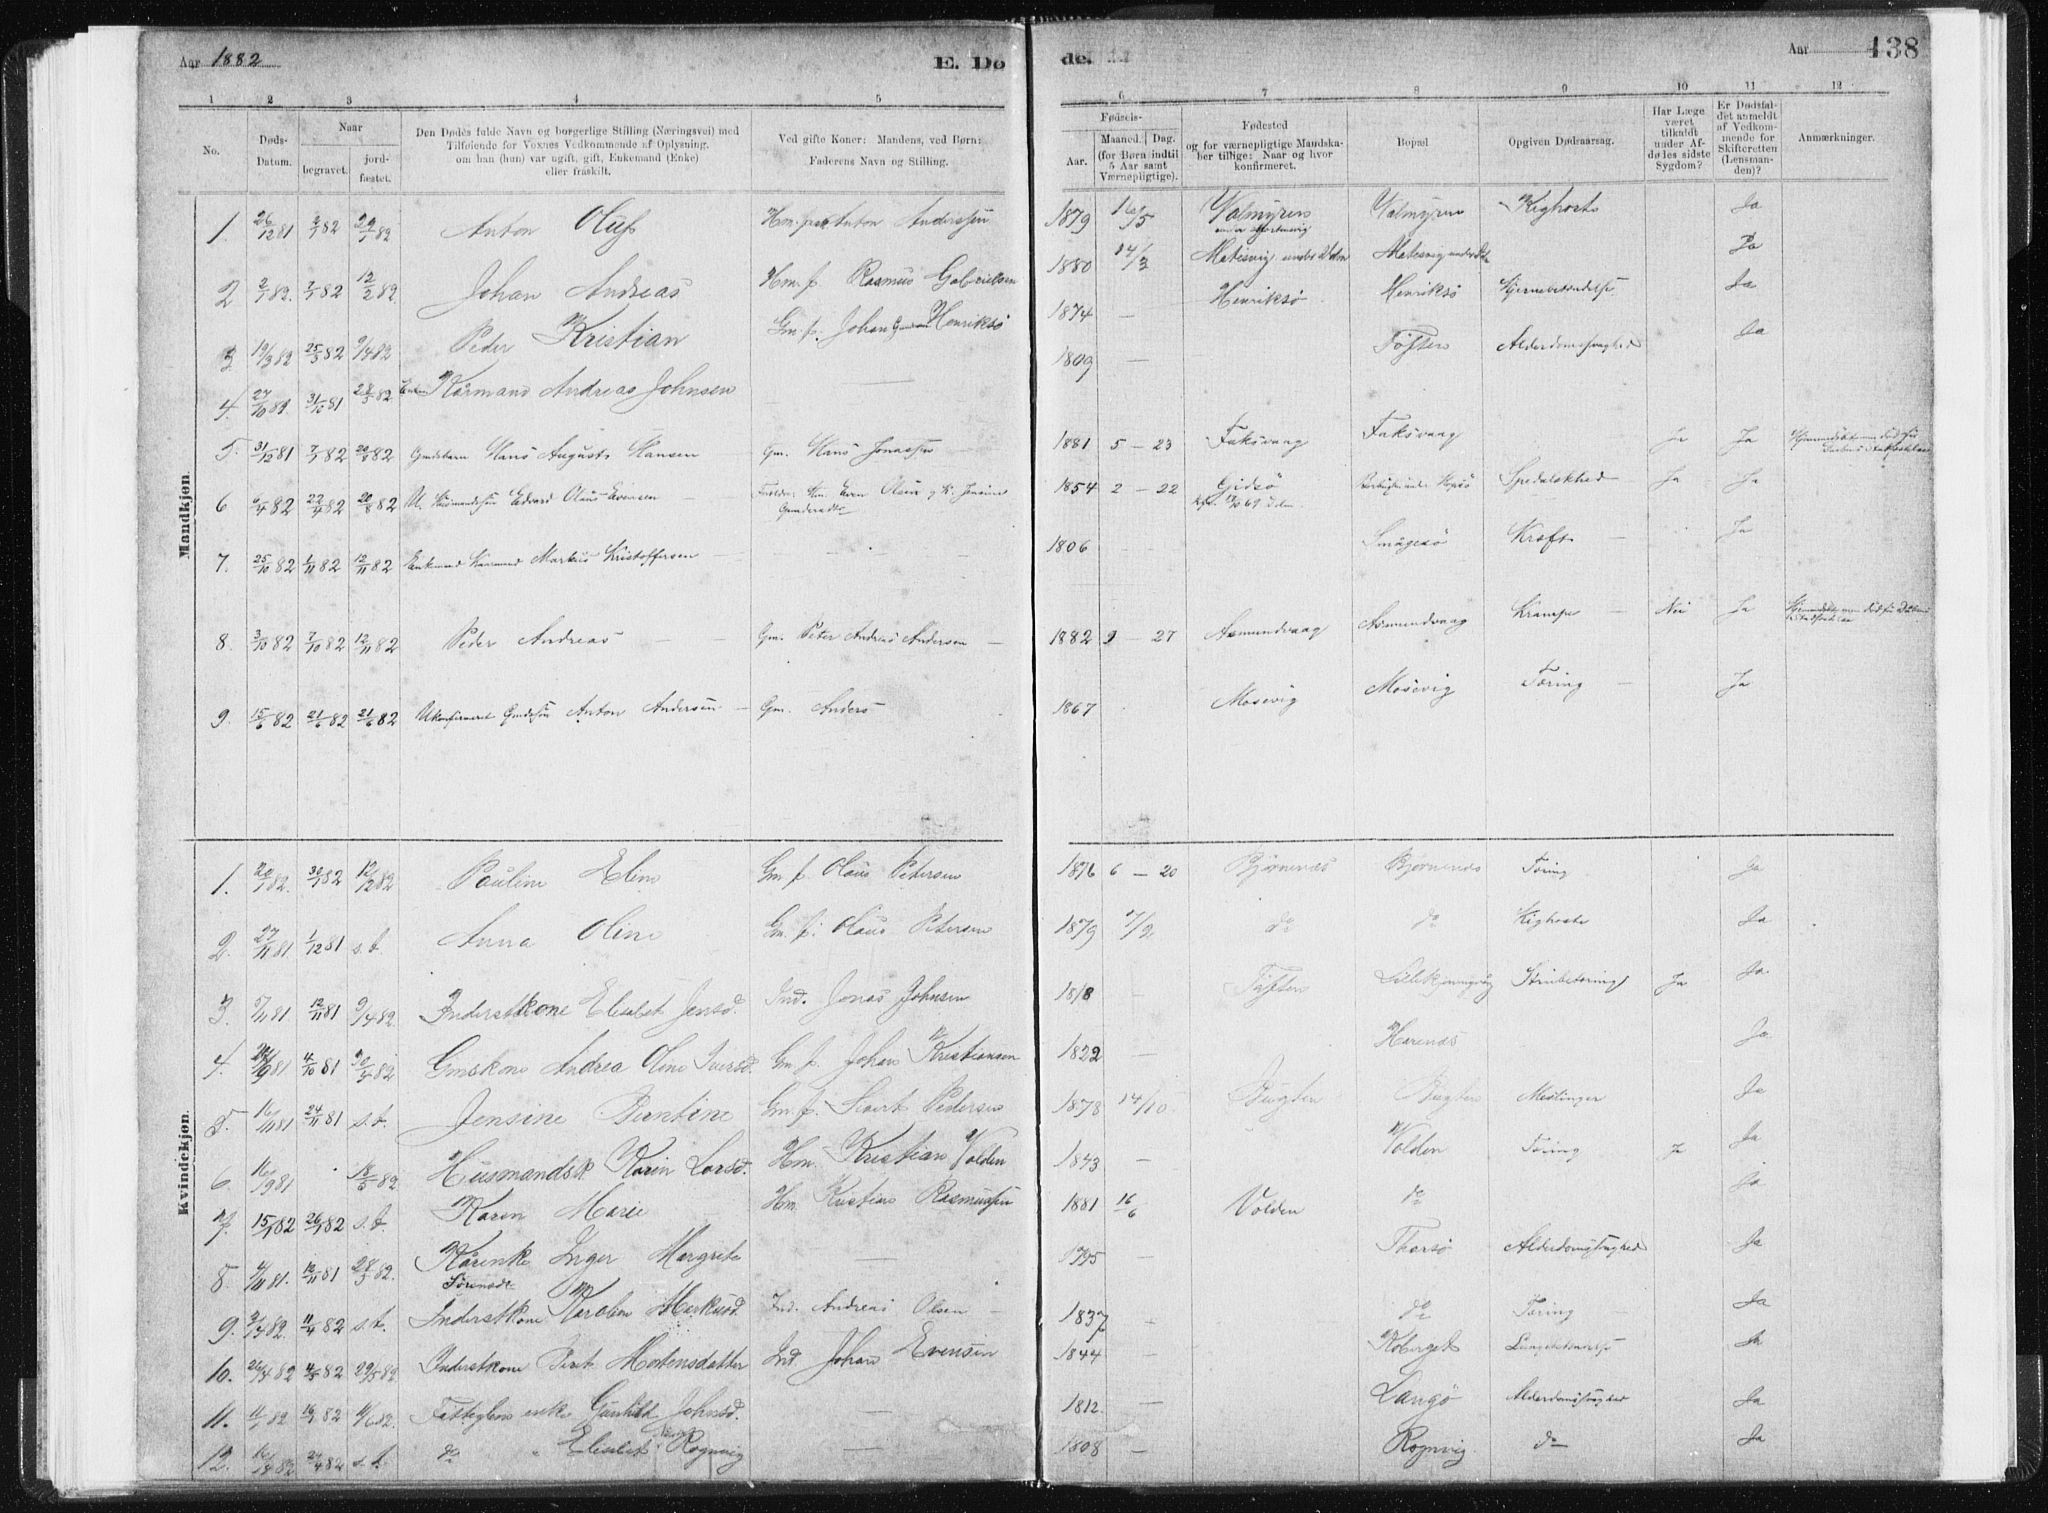 Aar 1882
E. Dø
de.
Aar 138
1 2 3 4 5
6 7 8 9 10 11 12
No.
Døds-Datum.
Naar
begravet.
jord-fæstet.
Den Dødes fulde Navn og borgerlige Stilling (Næringsvei) med
Tilføiende for Voxnes Vedkommende af Oplysning,
om han (hun) var ugift, gift, Enkemand (Enke)
eller fraskilt.
Ved gifte Koner: Mandens, ved Børn:
Faderens Navn og Stilling.
Fødsels-
Aar.
Maaned. Dag.
(for Børn indtil
5 Aar samt
Værnepligtige).
Fødested
og for værnepligtige Mandska-
ber tillige: Naar og hvor
konfirmeret.
Bopæl
Opgiven Dødsaarsag.
Har Læge
været
tilkaldt
under Af-
dødes sidste
Sygdom?
Er Dødsfal-
det anmeldt
af Vedkom-
mende for
Skifteretten
(Lensman-
den)?
Anmærkninger.
Mandkjøn.
1. 26/12 81 2/1 82 29/1 82 Anton Oluf Hm. Anton Anderssen 1879 16/5 Valmyren Valmyren Kighoste Ja
2 2/1 82. 7/1 82 12/2 82 Johan Andreas Hm. f. Rasmus Gabrielsen 1880 14/3 Matisvig under Matisvig under Ja
3 19/3 82 25/3 82 9/4 82 Peder Kristian Gm. f. Johan Henriksø 1874 — Henriksø Henriksø Hjernebetændelse Ja
4. 27/10 81 31/10 81 28/5 82 Kårmand Andreas Johnsen — 1809 — Tøften Alderdomssvaghed Ja
5. 31/12 81 7/1 82 82 Gmdsbarn Hans August Hansen — Gm. Hans Jonassen — 1881 5 — 23 Faksvaag Faksvaag Ja Ja
6 6/4 82 22/4 82 20/8 82 U. Husmandssøn Edvard Olaus Evensen Hm. Even Olsen og K. Jensine
Gundersdtr 1854 2 — 22 Gidsø Spedalskhed Ja Ja
7. 25/10 82 1/11 82 12/11 82 Enkemand Kaarmand Markus Kristoffersen — 1806 Smågesø Kræft — Ja
8. 3/10 82 7/10 82 12/11 82 Peder Andreas — Gm. Peter Andreas Andersen — 1882 9 — 27 Asmundvaag Asmundvaag Krampe — Nei Ja
9. 15/6 82 21/6 82 21/6 82 Ukonfirmeret Gmdssøn Anton Andersen — Gm. Anders 1867 Mosevig Mosevig Tæring — Ja
Kvindekjøn.
1. 20/1 82. 30/1 82 12/2 82 Pauline Eline Gm. f. Olaus Petersen 1876 6 — 20 Bjørnenæs Bjørnenæs Tæring Ja
2. 27/11 81 1/12 81 s. d. Anna Oline Gm. f. Olaus Petersen 1879 7/9 do do Kighoste Ja
3. 7/11 81 12/11 81 9/4 82. Inderstkone Elisabet Jensd. Ind. Jonas Johnsen 1818 — Tøften Ja Ja
4. 81 4/10 81 82 Gmskone Andrea Oline Iversd. Gm. f. Johan Kristiansen 1822 — Harenæs Ja
5. 16/11 81 24/11 81 s. d. Jensine Berntine Gm. f. Sivert Pedersen 1878 14/10. Bugten Bugten Meslinger Ja
6. 16/9 81 18/5 82 Husmandsk. Karin Larsd. Hm. Kristian Volden 1843 — Volden Tæring Ja Ja
7. 15/1 82 26/1 82 s. d. Karen Marie Hm. Kristian Rasmussen 1881 16/6 Volden do Ja
8. 4/11 81. 12/11 81 28/5 82. Kårenke Inger Margrete
Sørensdtr — 1795 — Thorsø Alderdomssvaghed Ja
9. 3/4 82. 11/4 82 s. d. Inderstkone Karoline Markusd. Ind. Andreas Olsen — 1837 — do Tæring — Ja
10. 26/4 82 4/5 82 29/5 82 Inderstkone Berit Mortensdatter Ind. Johan Evensen 1844 — Roberget Lungebetændelse Ja
11. 11/1 82 19/1 82 11/6 82. Fattiglems enke Gunhild Johnsd. — 1812. — Langø Alderdomssvaghed Ja
12. 16/4 82 24/4 82 s. d. do " Elisabet Rognvig — 1808 — Rognvig. do Ja